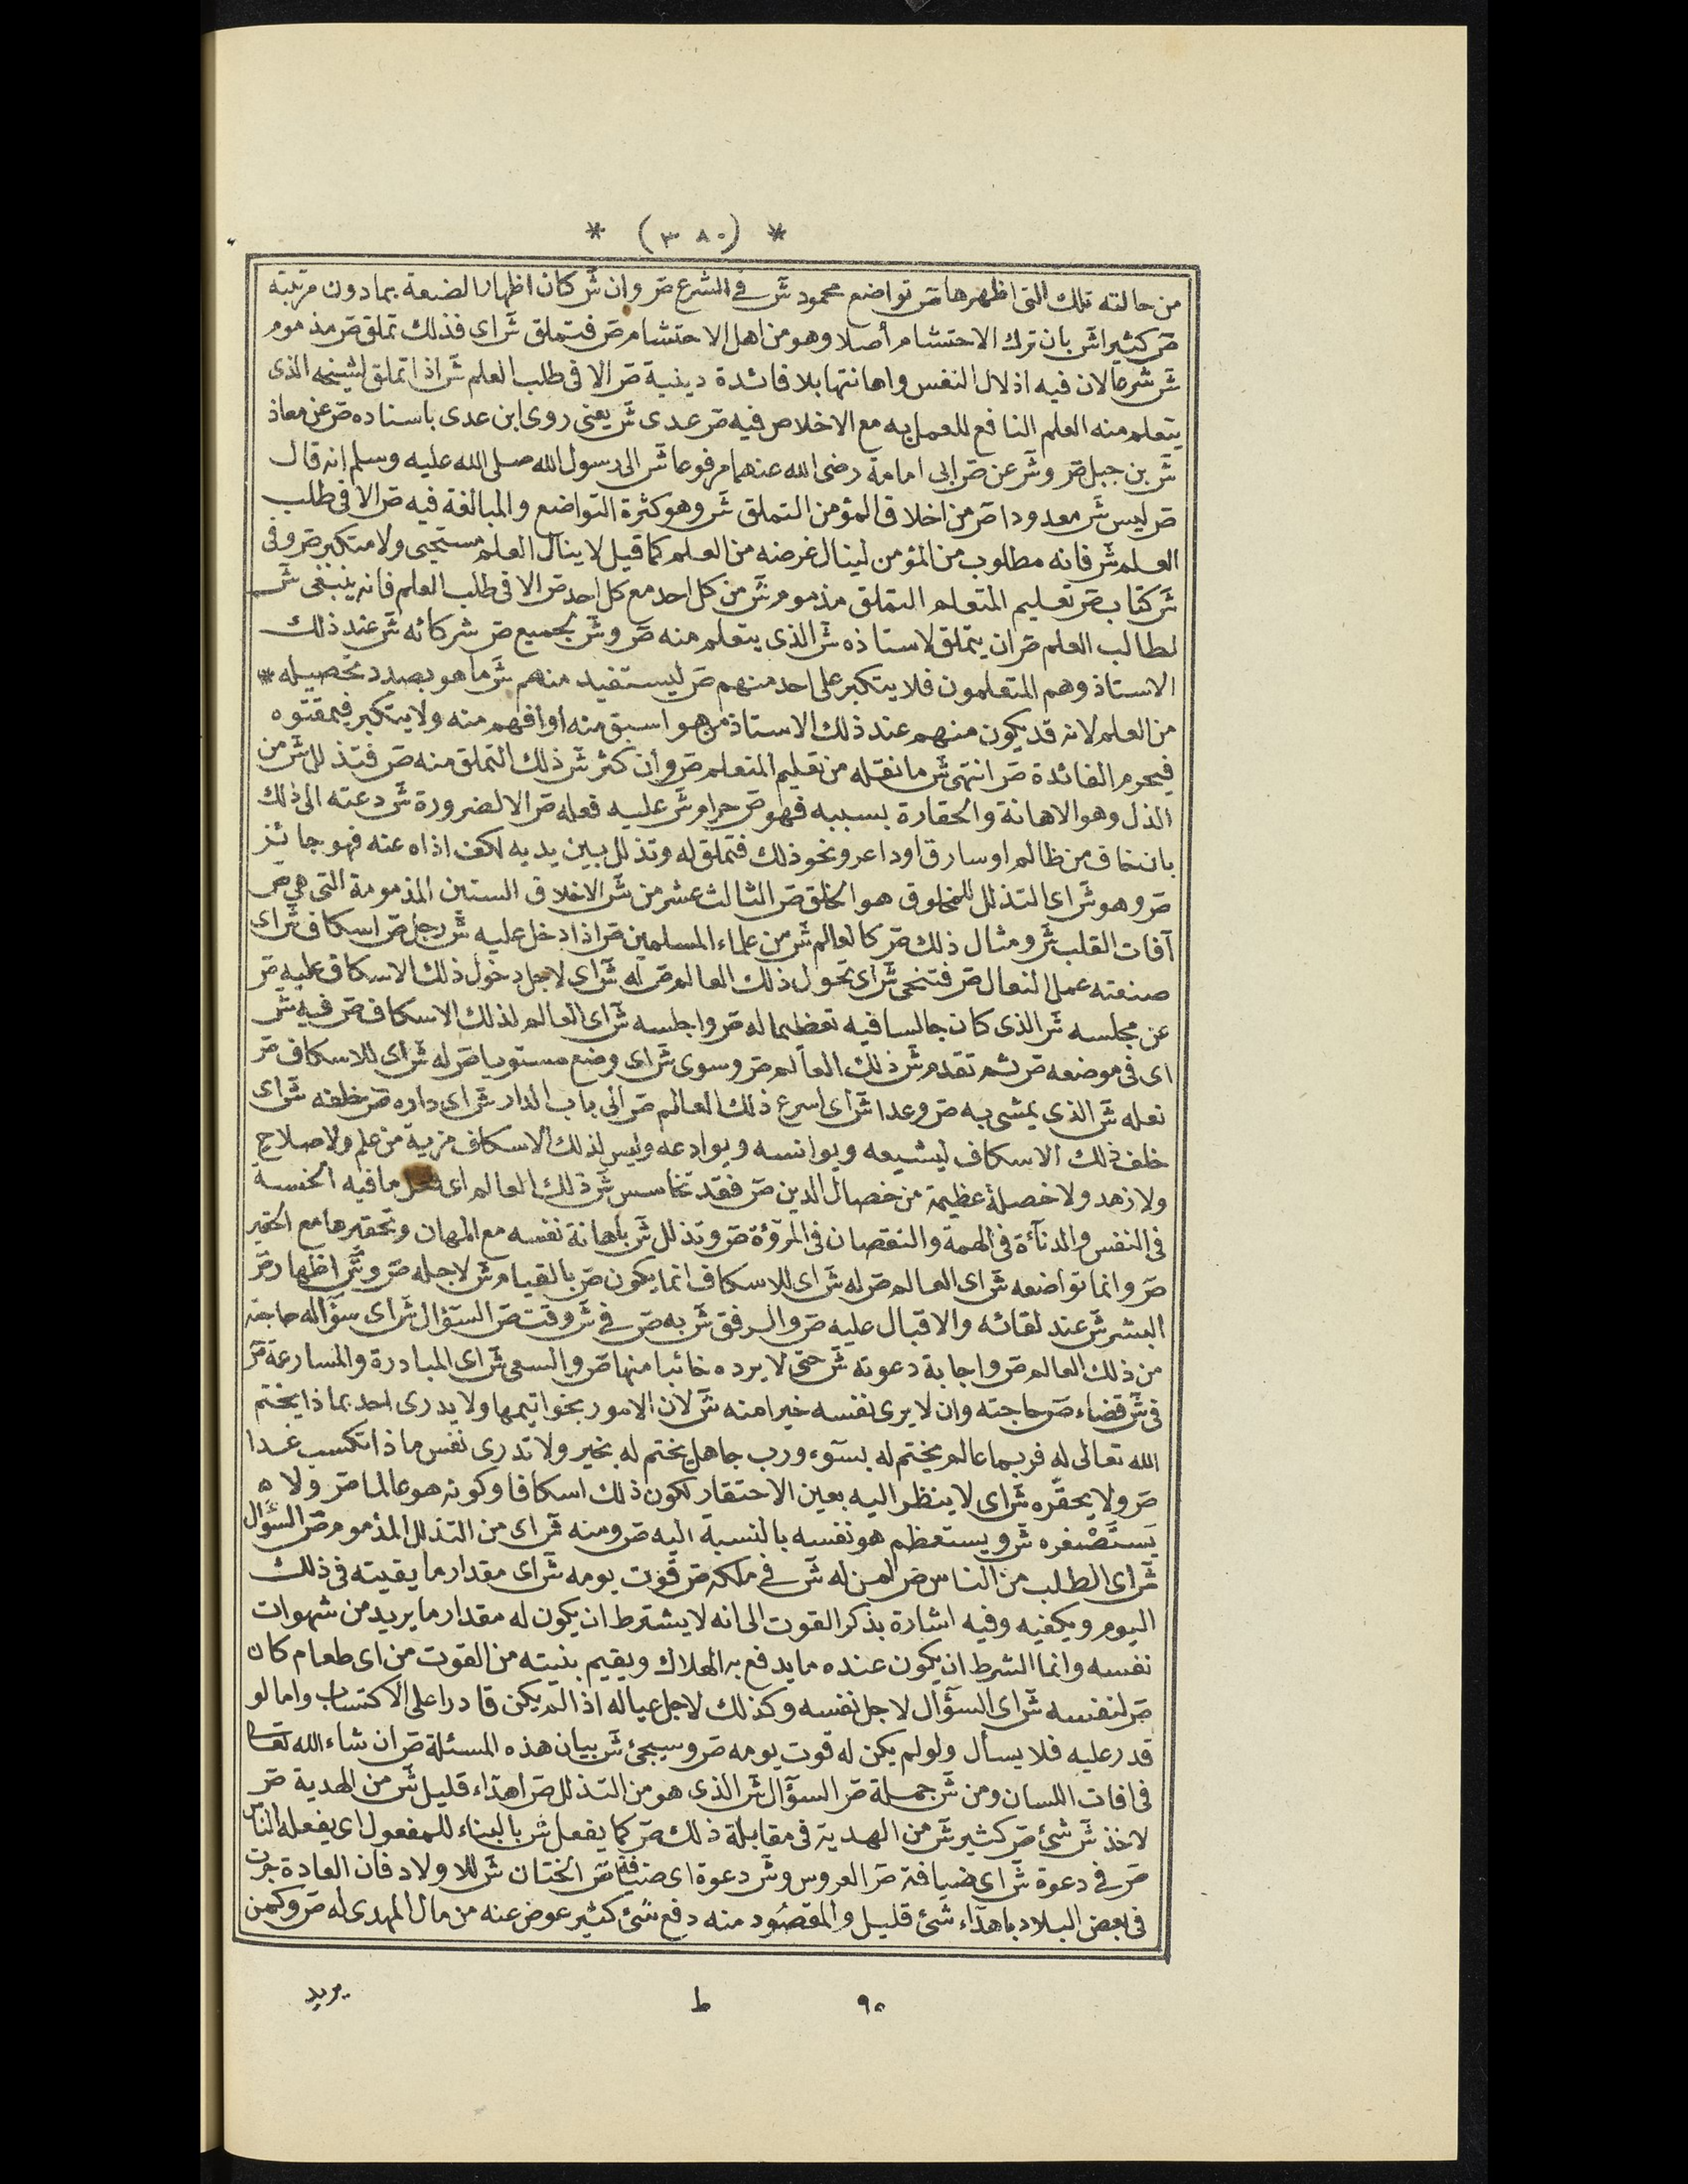 * (٣٨٠) *
من حالته تلك التى اظهرها صر تواضع محمود شر فى الشرع صر وان شر كان اظهار الضعة بما دون مرتبته
صر كثيرا شر بان ترك الاحتشام أصلا وهو من اهل الاحتشام صر فتملق شر اى فذلك تملق صر مذموم
شر شرعا لان فيه اذلال النفس واهانتها بلا فائدة دينية صر الا فى طلب العلم شر اذا تملق لشيخه الذى
يتعلم منه العلم النافع للعمل به مع الاخلاص فيه صر عدى شر يعنى روى ابن عدى باسناده صر عن معاذ
شر بن جبل صر وشر عن صر ابى امامة رضى الله عنهما مرفوعا شر الى رسول الله صلى الله عليه وسلم انه قال
صر ليس شر معدودا صر من اخلاق المؤمن التملق شر وهو كثرة التواضع والمبالغة فيه صر الا فى طلب
العلم شر فانه مطلوب من المؤمن لينال غرضه من العلم كما قيل لا ينال العلم مستحيى ولا متكبر صر وفى
شر كتاب صر تعليم المتعلم التملق مذموم شر من كل احد مع كل احد صر الا فى طلب العلم فانه ينبغى شر
لطالب العلم صر ان يتملق لاستاذه شر الذى يتعلم منه صر وشر لجميع صر شركائه شر عند ذلك
الاستاذ وهم المتعلمون فلا يتكبر على احد منهم صر ليستفيد منهم شر ما هو بصدد تحصيله *
من العلم لانه قد يكون منهم عند ذلك الاستاذ من هو اسبق منه أو افهم منه ولا يتكبر فيمقتوه
فيحرم الفائدة صر انتهى شر ما نقله من تعليم المتعلم صر وان كثر شر ذلك التملق منه صر فتذلل شر من
الذل وهو الاهانة والحقارة بسببه فهو صر حرام شر عليه فعله صر الا لضرورة شر دعته الى ذلك
بان خاف من ظالم او سارق او داعر ونحو ذلك فتملق له وتذلل بين يديه لكف اذاه عنه فهو جائز
صر وهو شر اى التذلل للمخلوق هو الخلق صر الثالث عشر من شر الاخلاق الستين المذمومة التى هى صر
آفات القلب شر ومثال ذلك صر كالعالم شر من علماء المسلمين صر اذا دخل عليه شر رجل صر اسكاف شر اى
صنعته عمل النعال صر فتنحى شر اى تحول ذلك العالم صر له شر اى لاجل دخول ذلك الاسكاف عليه صر
عن مجلسه شر الذى كان جالسا فيه تعظيما له صر واجلسه شر اى العالم لذلك الاسكاف صر فيه شر
اى فى موضعه صر ثم تقدم شر ذلك العالم صر وسوى شر اى وضع مستويا صر له شر اى للاسكاف صر
نعله شر الذى يمشى به صر وعدا شر اى اسرع ذلك العالم صر الى باب الدار شر اى داره صر خلفه شر اى
خلف ذلك الاسكاف ليشيعه ويوانسه ويوادعه وليس لذلك الاسكاف مزية من علم ولا صلاح
ولا زهد ولا خصلة عظيمة من خصال الدين صر فقد تخاسس شر ذلك العالم اى ما فيه الخسة
فى النفس والدنآءة فى الهمة والنقصان فى المرؤة صر وتذلل شر باهانة نفسه مع المهان وتحقيرها مع الحقير
صر وانما تواضعه شر اى العالم صر له شر اى للاسكاف انما يكون صر بالقيام شر لاجله صر وشر اظهار صر
البشر شر عند لقائه والاقبال عليه صر والرفق شر به صر فى شر وقت صر السئوال شر اى سؤاله حاجته
من ذلك العالم صر واجابة دعوته شر حتى لا يرده خائبا منها صر والسعى شر اى المبادرة والمسارعة صر
فى شر قضاء صر حاجته وان لا يرى نفسه خيرا منه شر لان الامور بخواتيمها ولا يدرى احد بماذا يختم
الله تعالى له فربما عالم يختم له بسوء ورب جاهل يختم له بخير ولا تدرى نفس ماذا تكسب غدا
صر ولا يحقره شر اى لا ينظر اليه بعين الاحتقار لكون ذلك اسكافا وكونه هو عالما صر ولا ٥
يستصغره شر ويستعظم هو نفسه بالنسبة اليه صر ومنه شر اى من التذلل المذموم صر السؤال
شر اى الطلب من الناس صر لمن له شر فى ملكه صر قوت يومه شر اى مقدار ما يقيته فى ذلك
اليوم ويكفيه وفيه اشارة بذكر القوت الى انه لا يشترط ان يكون له مقدار ما يريد من شهوات
نفسه وانما الشرط ان يكون عنده ما يدفع به الهلاك ويقيم بنيته من القوت من اى طعام كان
صر لنفسه شر اى السؤال لاجل نفسه وكذلك لاجل عياله اذا لم يكن قادرا على الاكتساب واما لو
قدر عليه فلا يسأل ولو لم يكن له قوت يومه صر وسيجئ شر بيان هذه المسئلة صر ان شاء الله تعا
فى افات اللسان ومن شر جملة صر السؤال شر الذى هو من التذلل صر اهداء قليل شر من الهدية صر
لاخذ شر شئ صر كثير شر من الهدية فى مقابلة ذلك صر كما يفعل شر بالبناء للمفعول اى يفعله الناس
صر فى دعوة شر اى ضيافة صر العروس وشر دعوة اى ضيافة صر الختان شر للاولاد فان العادة جرت
فى بعض البلاد باهدآء شئ قليل والمقصود منه دفع شئ كثير عوض عنه من مال المهدى له صر وكمن
٩٥
ط
يريد